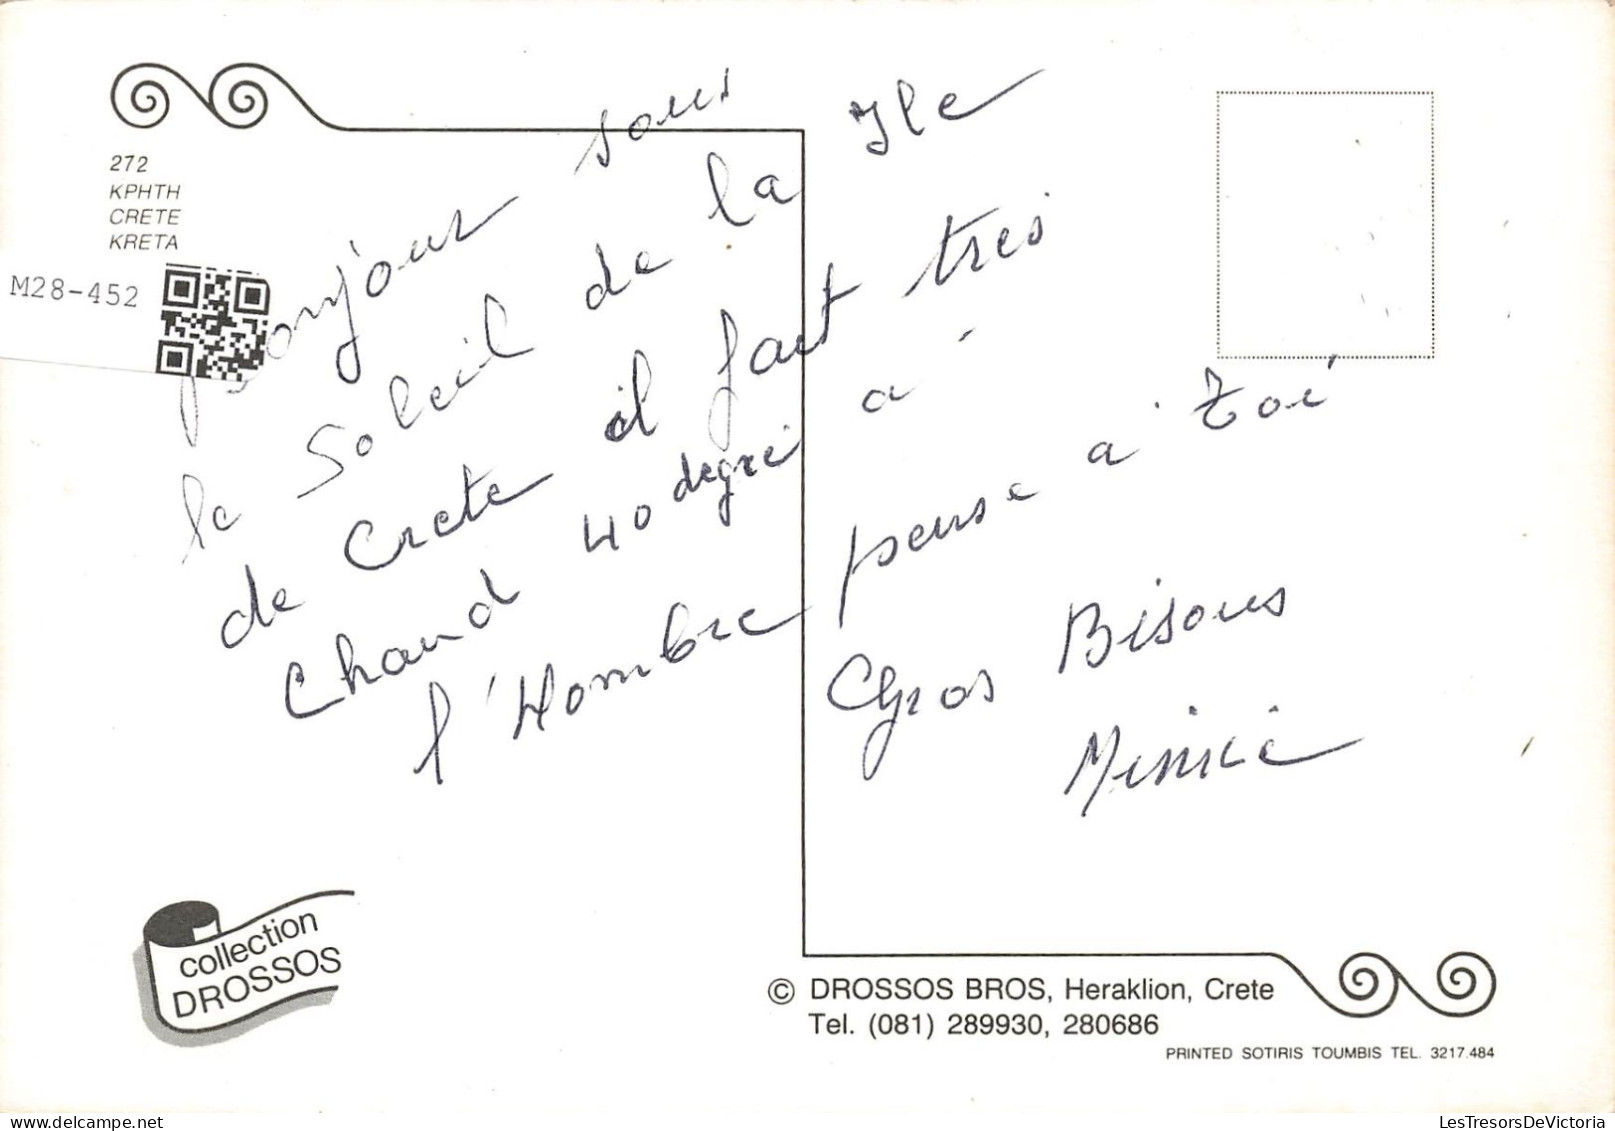 272
KPHTH
CRETE
KRETA
M28-452
Bonjour sous
le Soleil de la Ile
de Crete il fait tres
Chaud 40 degré a
l'Hombre pense a toi
Gros Bisous
collection
DROSSOS
© DROSSOS BROS, Heraklion, Crete
Tel. (081) 289930, 280686
PRINTED SOTIRIS TOUMBIS TEL. 3217.484
LesTresorsDeVictoria